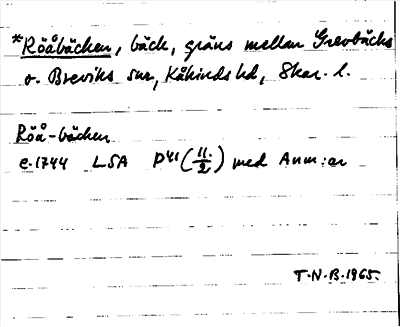 *Rööbäcken, bäck, gräns mellan Grevbäcks
o. Breviks snr, Kåkinds hd, Skar. l.
Röå-bäcken
c. 1744 LSA P41 (11/2) med Anm:ar
T.N.B. 1965.